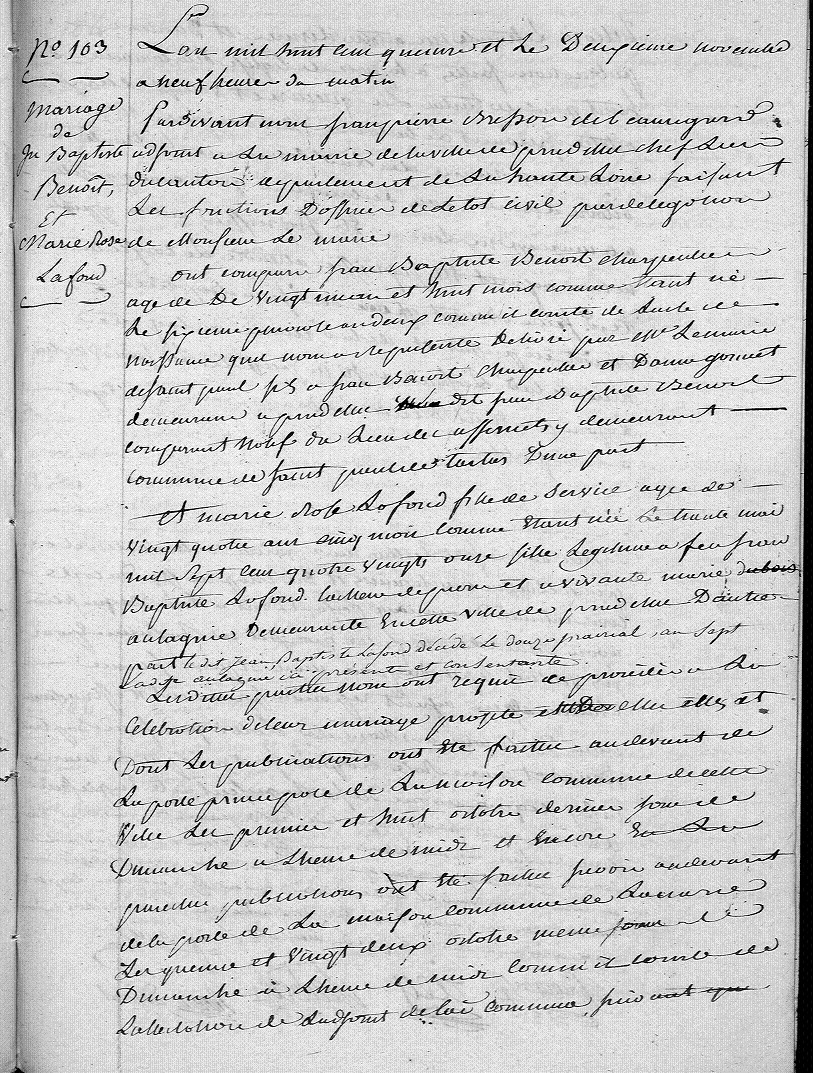 No 103
Mariage
de
Jn Baptiste
Benoît,
Et
Marie Rose
Lafond
L'an mil huit cent quinze et Le Deuxieme novembre
a neuf heures du matin
Pardevant nous jean pierre Brisson de beauregard
adjoint a La mairie de la ville de pradelles chef Lieu
du canton departement de La haute Loire faisant
Les fonctions D'officier de Letat civil par delegation
de Monsieur Le maire
ont comparu jean Baptiste Benoit charpentier
age de De vingt un an et huit mois comme Etant né
Le
comme il conste de Lacte de
naissance quil nous a representé Delivré par Mr Lemaire
de saint paul fils a jean Benoit charpentier et Dame
demeurant a pradelles Dit jean Baptiste Benoit
comparant natif du Lieu des y demeurant
commune de saint paul de tartas D'une part
Et marie Rose Lafond fille de service agee de
vingt quatre ans cinq mois comme Etant née Le trente mai
mil sept cent quatre vingts onze fille Legitime a feu jean
Baptiste Lafond et a vivante marie
aulagnie Demeurante En cette ville de pradelles D'autre
part le dit jean Baptiste Lafond décédé le douze prairial, an sept
Ladite aulagnie ici présente et consentante.
Lesdittes parties nous ont requis de proceder a La
Celebration de leur mariage projeté entre elles et
Dont Les publications ont Eté faittes au devant de
La porte principale de La maison commune de cette
ville Les premier et huit octobre dernier jours de
Dimanche a Lheure de midi et Encore
pareilles publications ont Eté faittes au devant
de la porte de La maison commune de
Les quinze et vingt deux octobre meme
Dimanche a Lheure de midi comme il conste de
Lattestation de Ladjoint de la commune